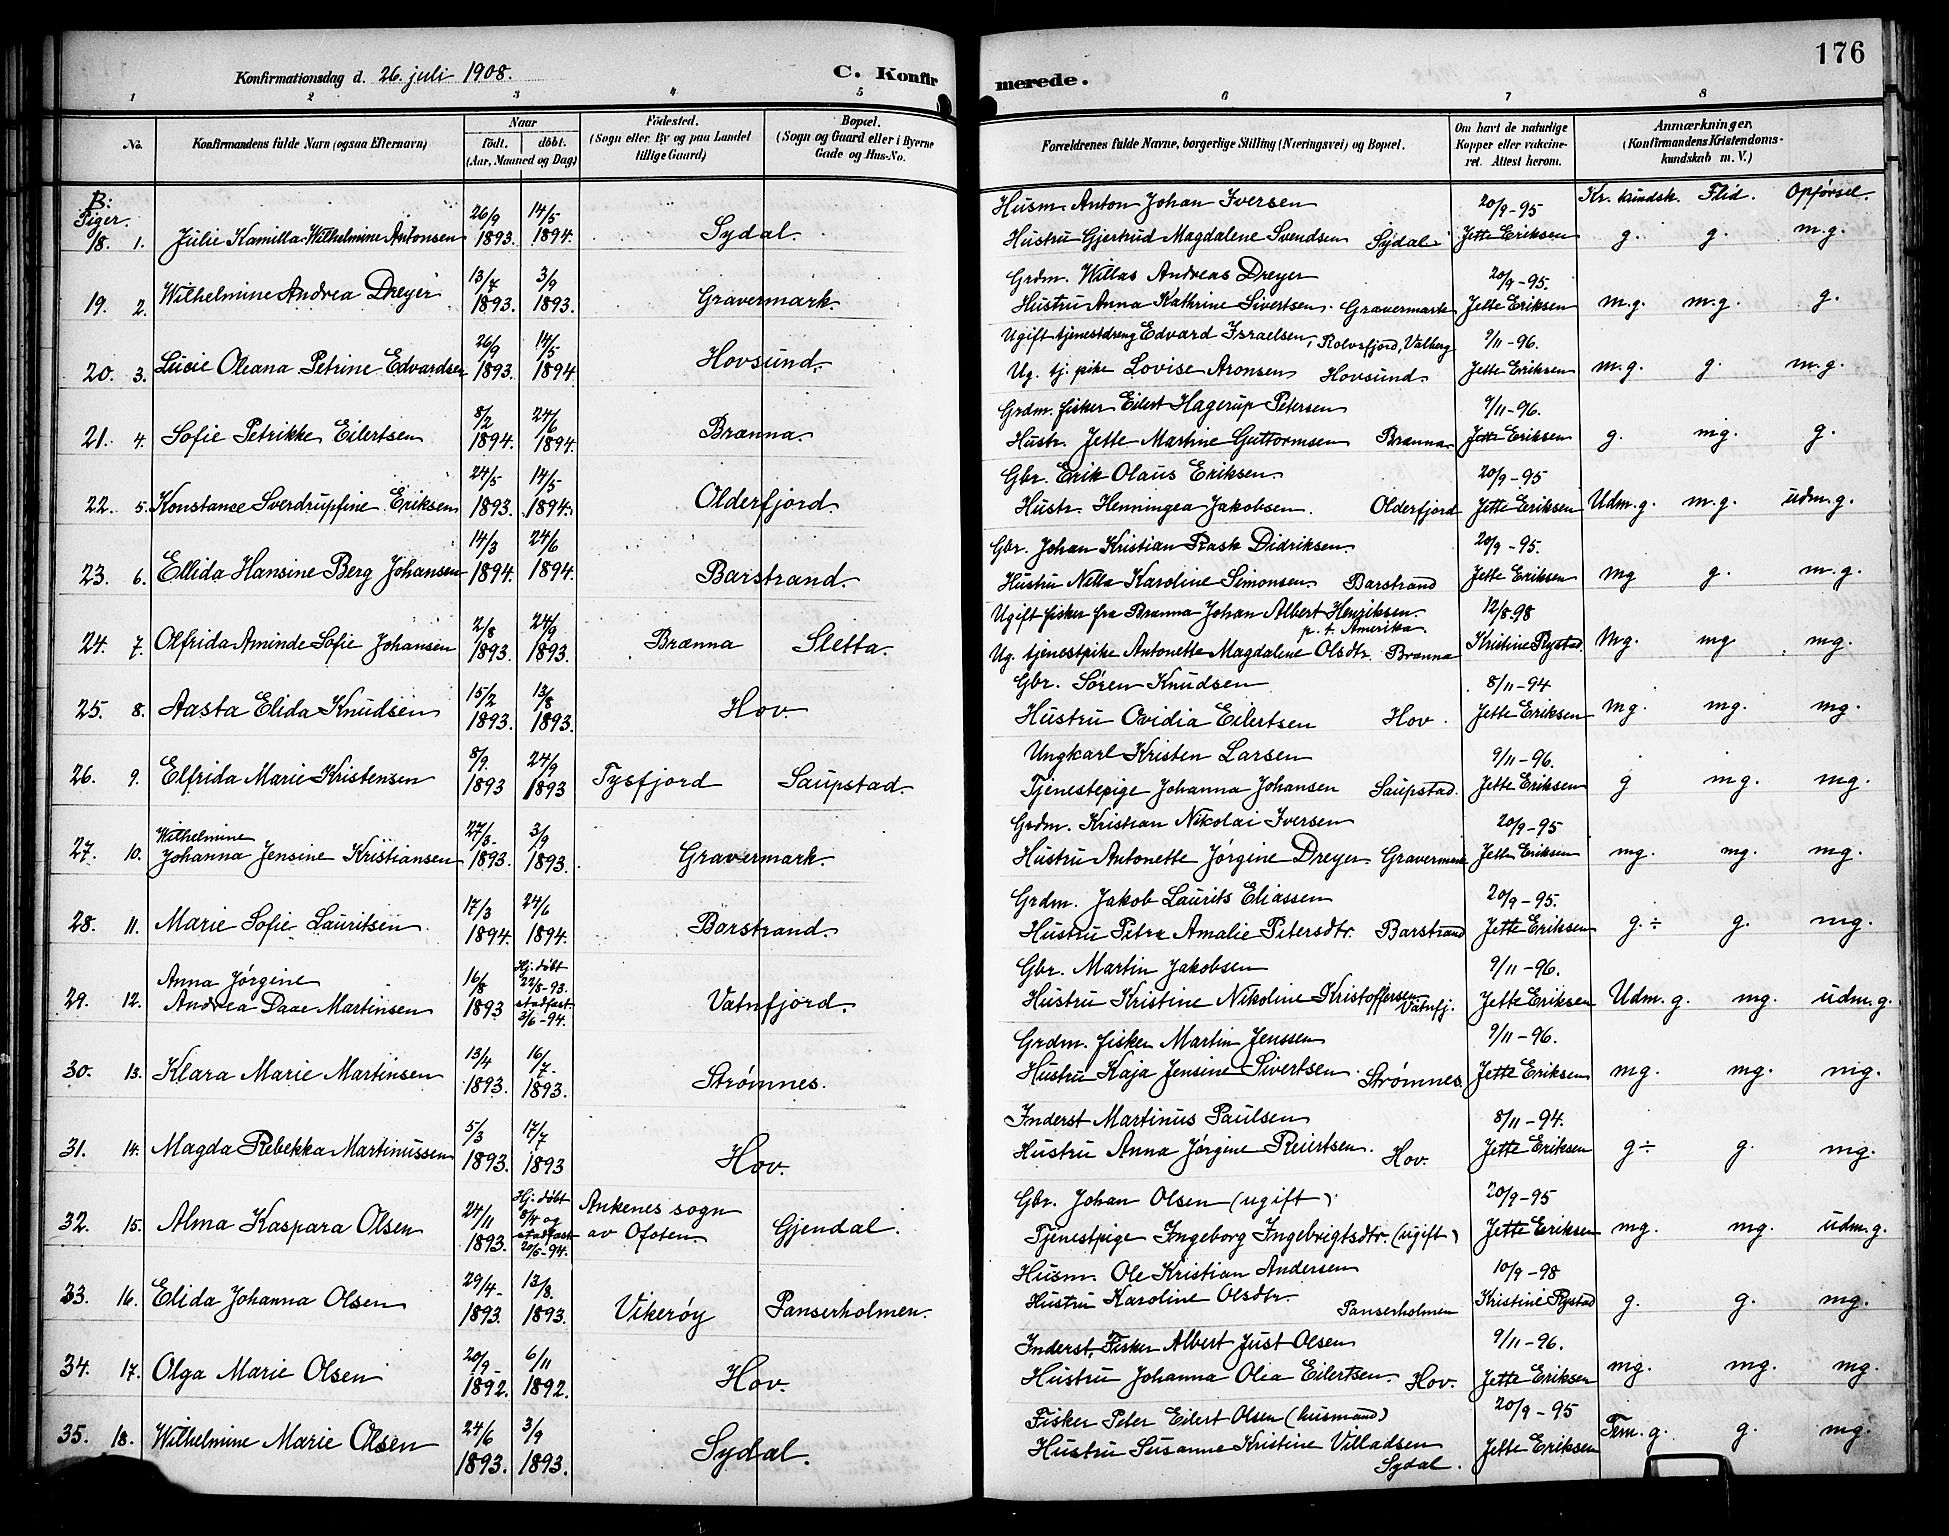 176
Konfirmationsdag d. 26. juli 1908.
C. Konfirmerede.
1 2 3 4 5 6 7 8
No. Konfirmandens fulde Navn (ogsaa Efternavn) Naar født. døbt. (Aar, Maaned og Dag) Fødested. (Sogn eller By og paa Landet tillige Gaard) Bopæl. (Sogn og Gaard eller i Byerne Gade og Hus-No. Forældrenes fulde Navne, borgerlige Stilling (Næringsvei) og Bopæl. Om havt de naturlige Kopper eller vaccineret. Attest herom. Anmærkninger, (Konfirmandens Kristendomskundskab m. V.)
B: Piger. Kr. kundsk. Flid. Opførsel.
18. 1. Julie Kamilla Wilhelmine Antonsen 26/9 1893. 14/5 1894. Sydal. Husm. Anton Johan Iversen 20/9-95
Hustru Gjertrud Magdalene Svendsen Sydal Jette Eriksen g. g. m.g.
19. 2. Wilhelmine Andrea Dreyer 13/7 1893. 3/9 1893. Gravermark. Grdm. Willas Andreas Dreyer 20/9-95.
Hustru Anna Kathrine Sivertsen. Gravermark Jette Eriksen m.g. m.g. g.
20. 3. Lucie Oleana Petrine Edvardsen 26/9 1893. 14/5 1894 Hovsund. Ugift tjenestdreng Edvard Israelsen, Rolvsfjord, Valberg 9/11-96.
Ug. tj. pike Lovise Aronsen Hovsund. Jette Eriksen m.g. g. m.g.
21. 4. Sofie Petrikke Eilertsen 8/2 1894. 24/6 1894. Brænna. Grdm. fisker Eilert Hagerup Petersen 9/11-96.
Hustr. Jette Martine Guttormsen Brænna. Jette Eriksen g. mg. g.
22. 5. Konstance Sverdrupfine Eriksen 24/5 1893. 14/5 1894. Olderfjord Gbr. Erik Olaus Eriksen. 20/9-95
Hustr. Henningea Jakobsen. Olderfjord Jette Eriksen Udm.g. m.g. udm.g.
23. 6. Ellida Hansine Berg Johansen 14/3 1894. 24/6 1894. Barstrand. Gbr. Johan Kristian Rask Didriksen. 20/9-95.
Hustru Netta Karoline Simonsen Barstrand Jette Eriksen mg g. m.g.
24. 7. Olfrida Aminde Sofie Johansen 2/8 1893. 24/9 1893. Brænna Sletta. Ugift fisker fra Brænna Johan Albert Henriksen. 12/8-98
p. t. Amerika.
Ug. tjenestpike Antonette Magdalene Olsdtr. Brænna Kristine Rystad Mg. mg mg.
25. 8. Aasta Elida Knudsen 15/2 1893. 13/8 1893. Hov. Gbr. Søren Knudsen 8/11-94
Hustru Ovidia Eilertsen Hov. Jette Eriksen Mg. mg. mg.
26. 9. Elfrida Marie Kristensen 8/9. 1893 24/9 1893 Tysfjord Saupstad. Ungkarl Kristen Larsen 9/11-96.
Tjenestepige Johanna Johansen Saupstad. Jette Eriksen g mg. mg.
27. 10. Wilhelmine Johanna Jensine Kristiansen 27/3- 1893. 3/9 1893. Gravermark. Grdm. Kristian Nikolai Iversen 20/9-95
Hustru Antonette Jørgine Dreyer Gravermark Jette Eriksen mg. mg. mg.
28. 11. Marie Sofie Lauritsen 17/3 1894. 24/6 1894. Barstrand. Grdm. Jakob Laurits Eliassen 20/9-95.
Hustru Petra Amalie Petersdtr. Barstrand Jette Eriksen g. ÷ g. mg.
29. 12. Anna Jørgine Andrea Daae Martinsen 16/8 1893 Hj. døbt 22/8-93. stadfæst 3/6-94. Vatnfjord. Gbr. Martin Jakobsen 9/11-96.
Hustru Kristine Nikoline Kristoffersen Vatnfj. Jette Eriksen Udm.g. mg. udm.g.
30. 13. Klara Marie Martinsen 13/4 1893. 16/7- 1893. Strømnes. Grdm. fisker Martin Jenssen 9/11-96.
Hustru Kaja Jensine Sivertsen. Strømnes. Jette Eriksen mg. mg. mg.
31. 14. Magda Rebekka Martinussen 5/3 1893. 17/7 1893 Hov. Inderst Martinus Paulsen 8/11-94.
Hustru Anna Jørgine Reiertsen. Hov. Jette Eriksen g ÷ g. mg.
32. 15. Alma Kaspara Olsen 24/11 1893. Hj. døbt 8/4 og stadfæst 20/5-94. Ankenes sogn av Ofoten. Gjendal. Gbr. Johan Olsen (ugift) 20/9-95
Tjenestpige Ingeborg Ingebrigtsdtr. (ugift) Jette Eriksen mg. mg. udm.g.
33. 16. Elida Johanna Olsen 29/4- 1893. 13/8. 1893. Vikerøy Panserholmen. Husm. Ole Kristian Andersen 10/9-98
Hustru Karoline Olsdtr. Panserholmen Kristine Rystad g. g. mg.
34. 17. Olga Marie Olsen 20/9- 1892. 6/11 1892. Hov. Inderst, Fisker Albert Just Olsen 9/11-96.
Hustru Johanna Olea Eilertsen. Hov. Jette Eriksen mg. mg. mg.
35. 18. Wilhelmine Marie Olsen 24/6 1893. 3/9 1893. Sydal. Fisker Peter Eilert Olsen (husmand) 20/9-95
Hustru Susanne Kristine Villadsen Sydal. Jette Eriksen Tem. g. g. mg.